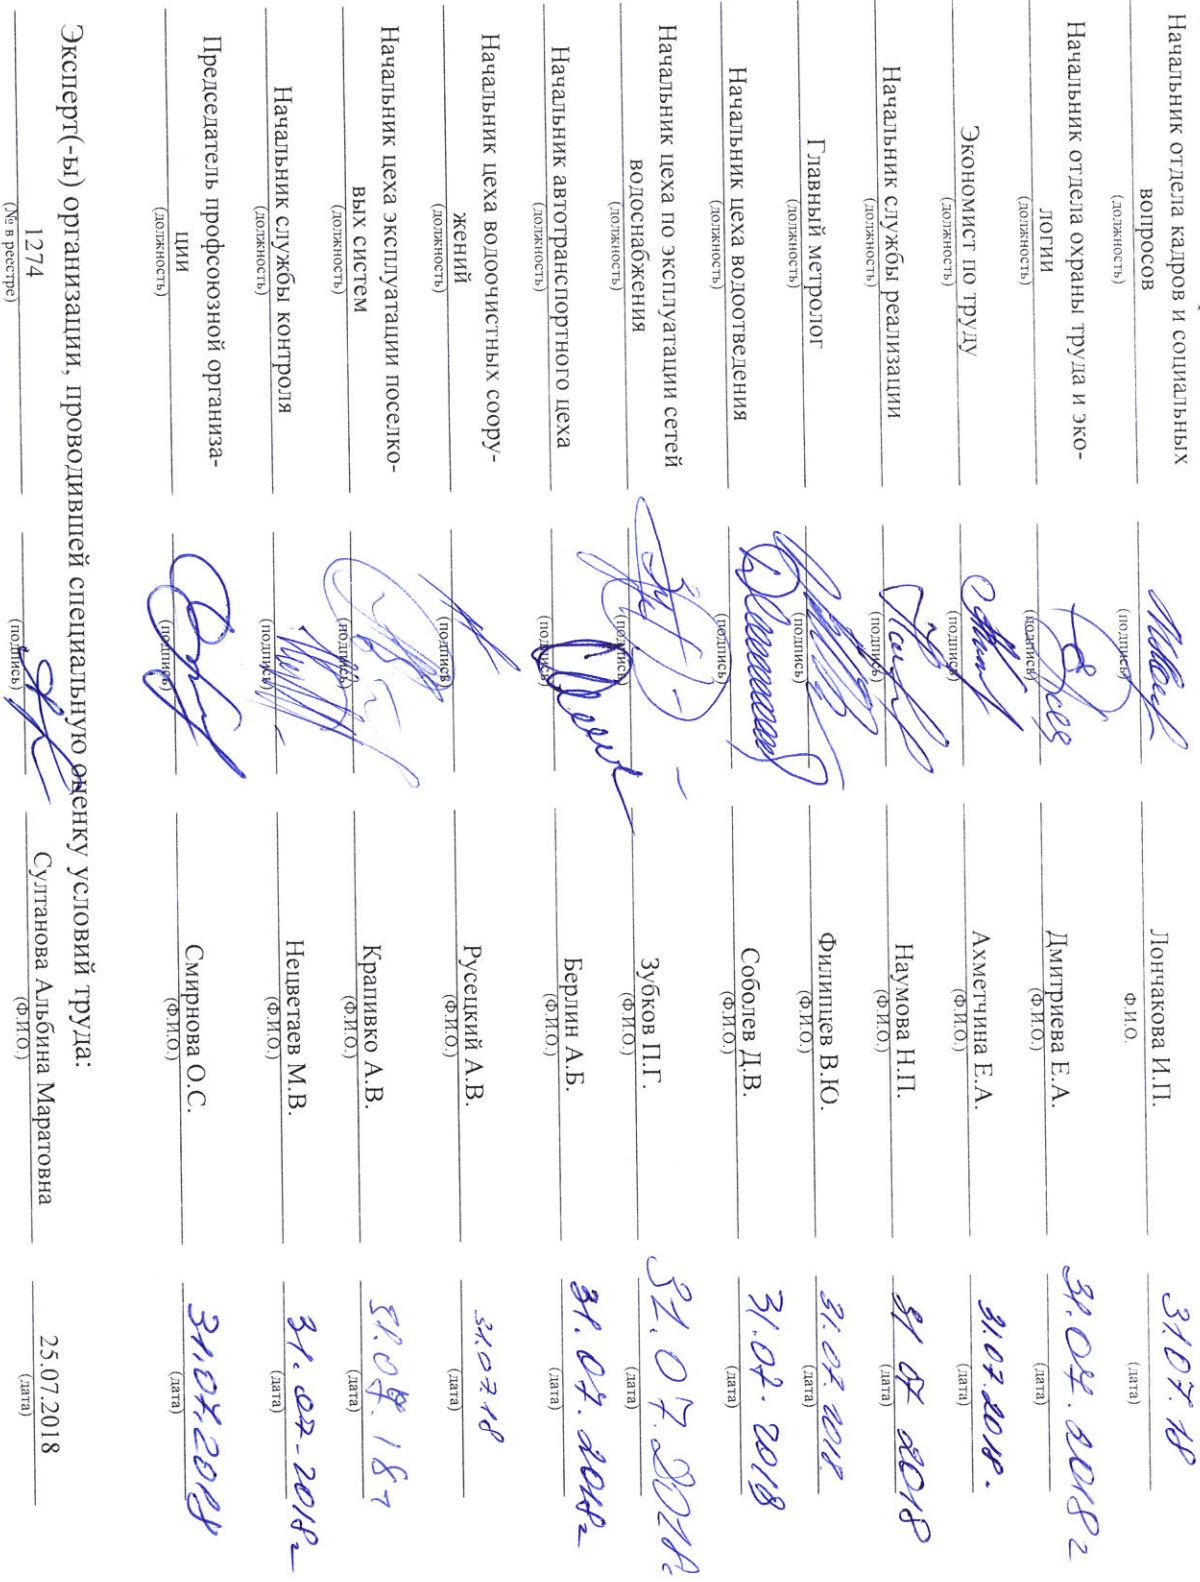 Начальник отдела кадров и социальных
вопросов
(должность) (подпись) Лончакова И.П. Ф.И.О. 31.07.18 (дата)
Начальник отдела охраны труда и эко-
логии
(должность) (подпись) Дмитриева Е.А. (Ф.И.О.) 31.07.2018г (дата)
Экономист по труду Ахметчина Е.А. 31.07.2018.
(должность) (подпись) (Ф.И.О.) (дата)
Начальник службы реализации Наумова Н.П. 31 07 2018
(должность) (подпись) (Ф.И.О.) (дата)
Главный метролог Филипцев В.Ю. 31.07.2018.
(должность) (подпись) (Ф.И.О.) (дата)
Начальник цеха водоотведения Соболев Д.В. 31.07.2018
(должность) (подпись) (Ф.И.О.) (дата)
Начальник цеха по эксплуатации сетей
водоснабжения Зубков П.Г. 31.07.2018г
(должность) (подпись) (Ф.И.О.) (дата)
Начальник автотранспортного цеха Берлин А.Б. 31.07.2018г
(должность) (подпись) (Ф.И.О.) (дата)
Начальник цеха водоочистных соору-
жений Русецкий А.В. 31.07.18
(должность) (подпись) (Ф.И.О.) (дата)
Начальник цеха эксплуатации поселко-
вых систем Крапивко А.В. 31.07.18г
(должность) (подпись) (Ф.И.О.) (дата)
Начальник службы контроля Нецветаев М.В. 31.07-2018г
(должность) (подпись) (Ф.И.О.) (дата)
Председатель профсоюзной организа-
ции Смирнова О.С. 31.07.2018
(должность) (подпись) (Ф.И.О.) (дата)
Эксперт(-ы) организации, проводившей специальную оценку условий труда:
1274 Султанова Альбина Маратовна 25.07.2018
(№ в реестре) (подпись) (Ф.И.О.) (дата)